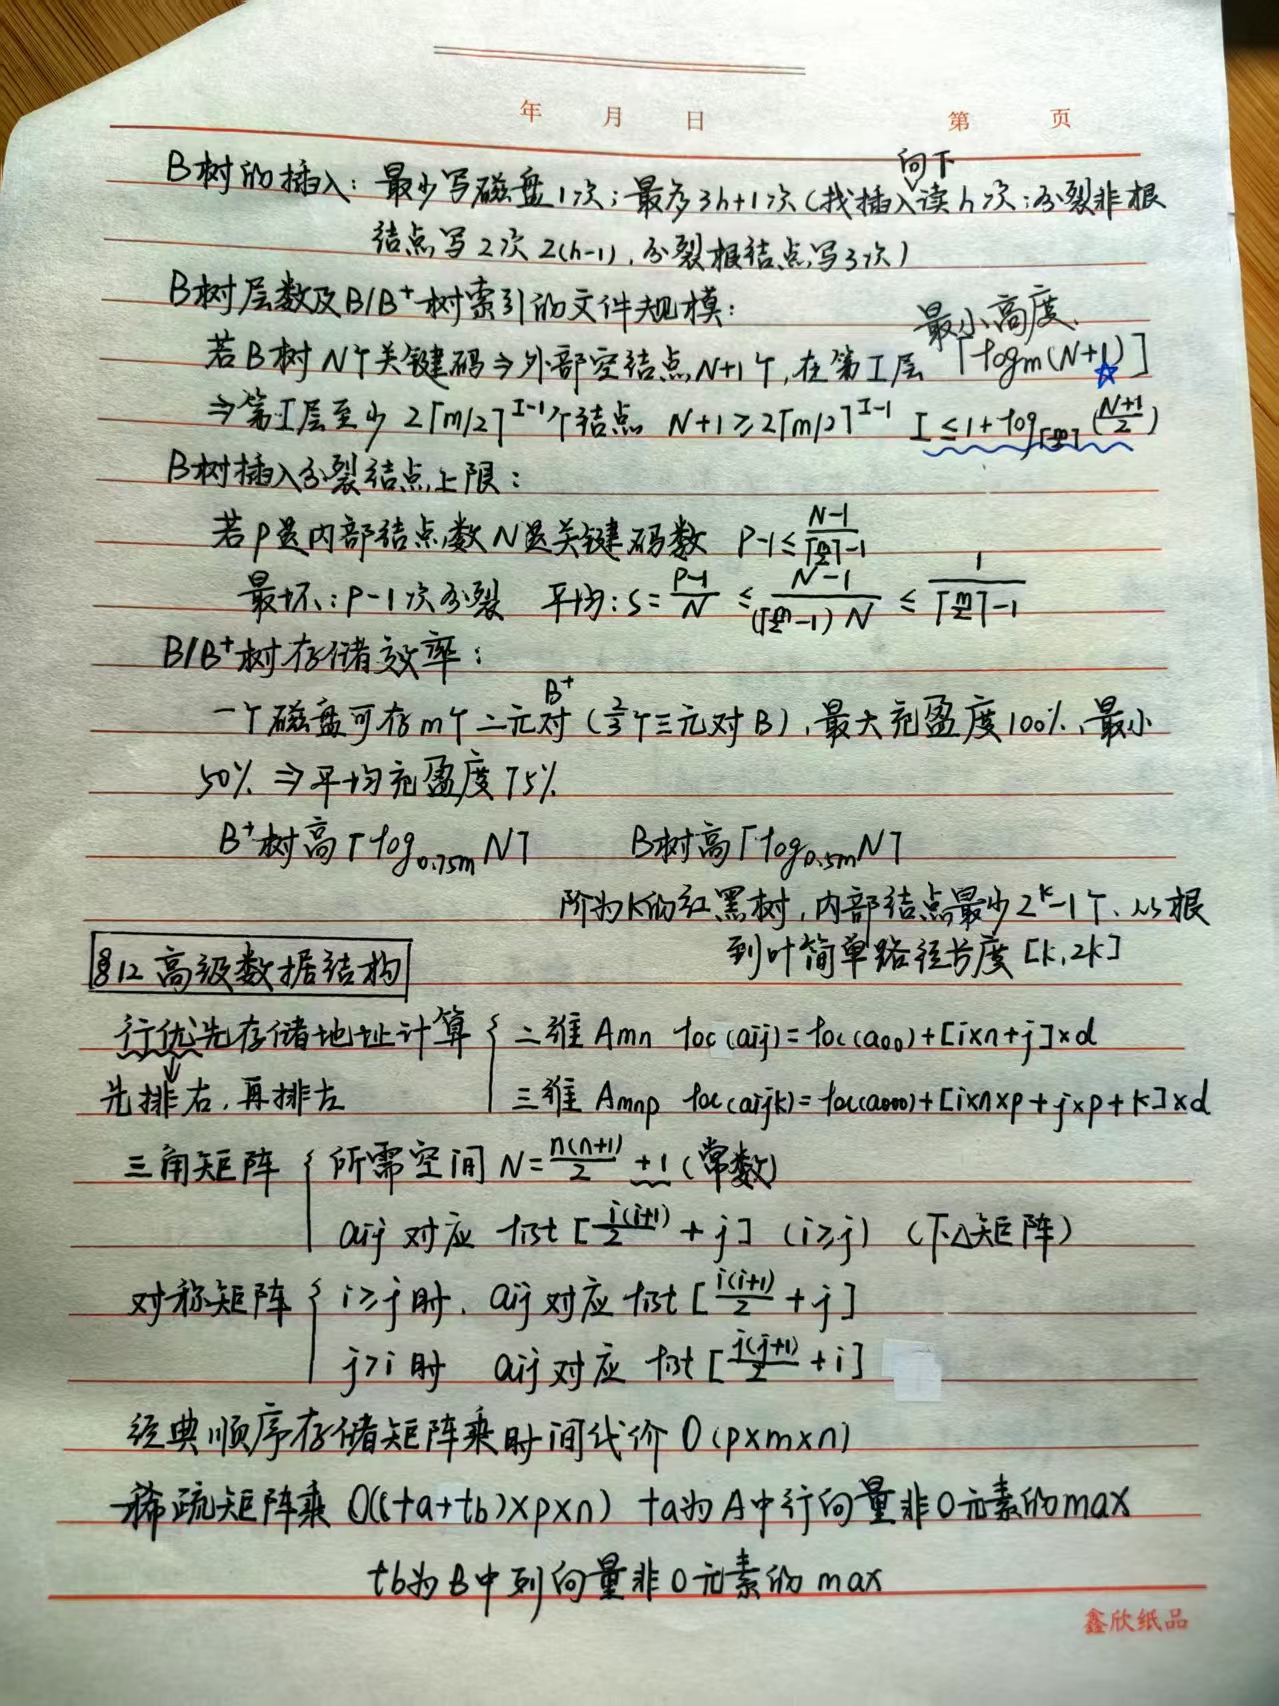 年 月 日 第 页
向下
B树的插入：最少写磁盘1次；最多3h+1次(找插入读h次；分裂非根
结点写2次 2(h-1)，分裂根结点写3次)
B树层数及B/B⁺树索引的文件规模：
最小高度
若B树N个关键码⇒外部空结点N+1个，在第I层 ⌈logm(N+1)⌉
☆
⇒第I层至少 2⌈m/2⌉^(I-1)个结点 N+1≥2⌈m/2⌉^(I-1) I≤1+log⌈m/2⌉(N+1/2)
B树插入分裂结点上限：
若P是内部结点数N是关键码数 P-1≤(N-1)/(⌈m/2⌉-1)
最坏：P-1次分裂 平均：S=(P-1)/N ≤ (N-1)/((⌈m/2⌉-1)N) ≤ 1/(⌈m/2⌉-1)
B/B⁺树存储效率：
B⁺
一个磁盘可存m个二元对(2/3个三元对B)，最大充盈度100%，最小
50% ⇒平均充盈度75%
B⁺树高⌈log0.75m N⌉ B树高⌈log0.5m N⌉
阶为K的红黑树，内部结点最少2^k-1个、从根
到叶简单路径长度[k,2k]
§12 高级数据结构
行优先存储地址计算 { 二维 Amn loc(aij)=loc(a00)+[i×n+j]×d
先排右，再排左 三维 Amnp loc(aijk)=loc(a000)+[i×n×p+j×p+k]×d
三角矩阵 { 所需空间 N=n(n+1)/2 +1(常数)
aij 对应 list[i(i+1)/2+j] (i≥j) (下△矩阵)
对称矩阵 { i≥j时，aij对应list[i(i+1)/2+j]
j>i时 aij对应 list[j(j+1)/2+i]
经典顺序存储矩阵乘时间代价 O(p×m×n)
稀疏矩阵乘 O((ta+tb)×p×n) ta为A中行向量非0元素的max
tb为B中列向量非0元素的max
鑫欣纸品